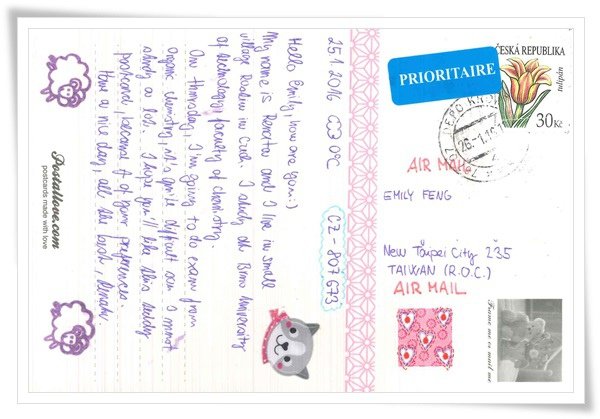 25.1.2016 0°C
Hello Emily, how are you :)
My name is Renata and I live in small
village in Czech. I study at Brno University
of technology, faculty of chemistry.
On thursday, I'm going to do exam from
organic chemistry, it's quite difficult so I must
study a lot. I hope you'll like this teddy
postcard, because of your preferences.
Have a nice day, all the best, Renata.
CZ-807673
Postallove.com
postcards made with love
PRIORITAIRE
ČESKÁ REPUBLIKA
tulipán
30 Kč
DEPO
26.1.16
AIR MAIL
EMILY FENG
New Taipei City 235
TAIWAN (R.O.C.)
AIR MAIL